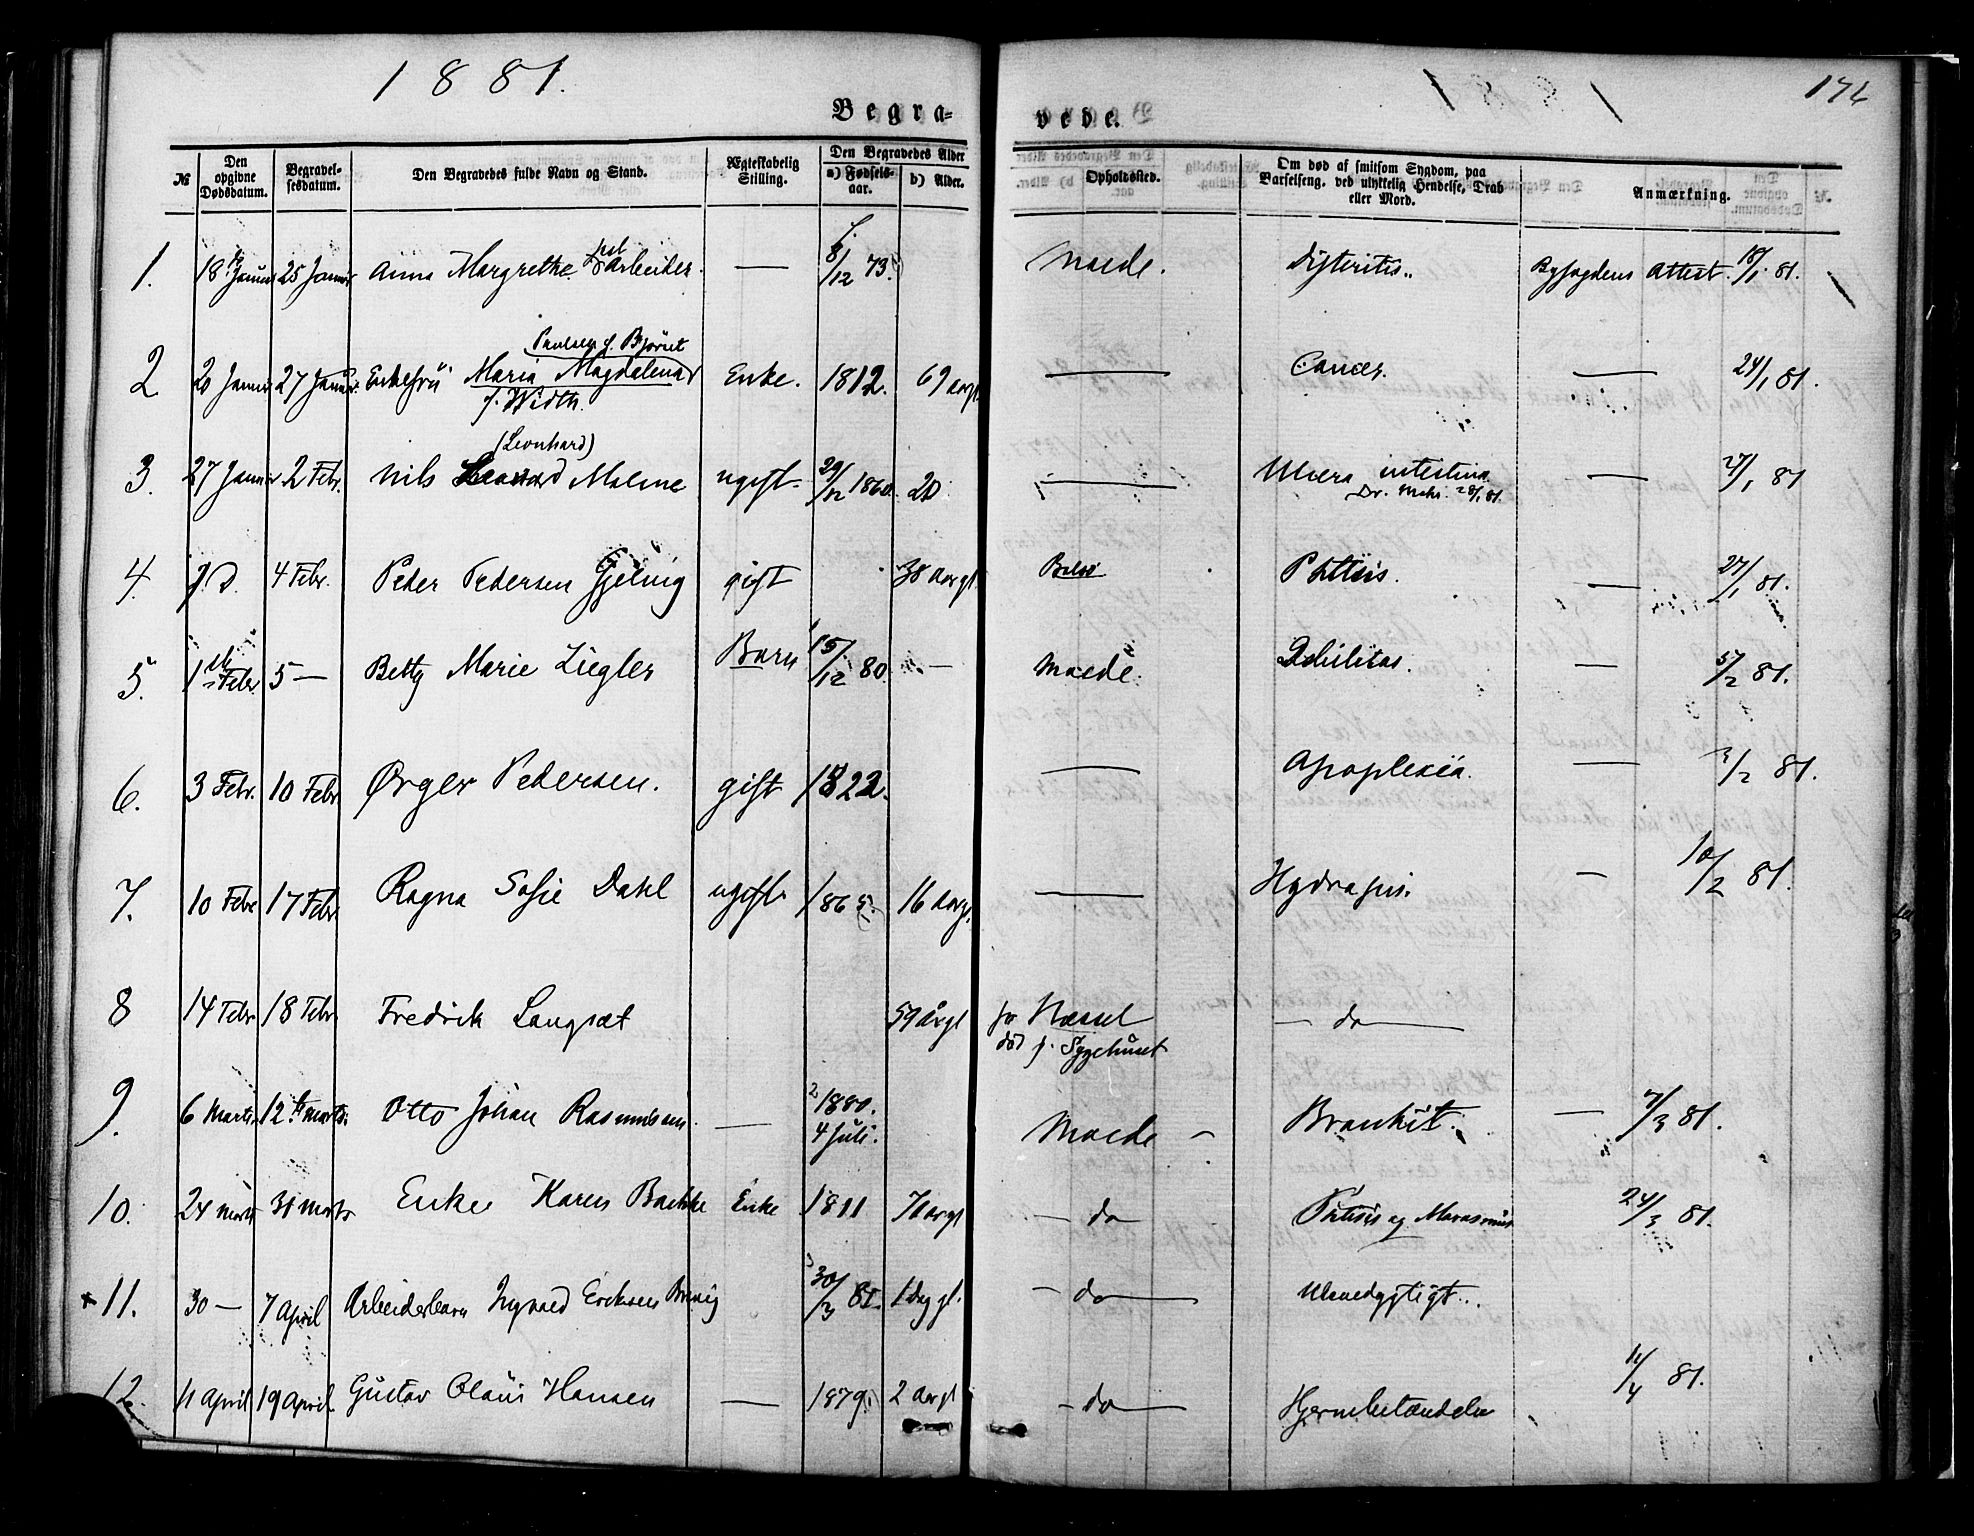 1881.
176
Begra=
vede.
№ | Den opgivne Dødsdatum. | Begravelsesdatum. | Den Begravedes fulde Navn og Stand. | Ægteskabelig Stilling. | Den Begravedes Alder a) Fødselsaar. | b) Alder. | Opholdssted. | Om død af smitsom Sygdom, paa Barselseng, ved ulykkelig Hendelse, Drab eller Mord. | Anmærkning.
1. | 18 Januar | 25 Januar | Anna Margrethe Arbeider. | — | f. 8/12 73. | | Molde. | Difteritis.. | Byfogdens Attest. 18/1 81.
2 | 20 Januar | 27 Januar. | Enkefrü Maria Magdalena Paulsen f. Bjørset f. Width. | Enke. | 1812. | 69 aargl | — | Cancer. | — 24/1 81.
3. | 27 Januar | 2 Febr. | Nils (Leonhard) Malme | ugift | 29/12 1860. | 20 | — | Ulcera intestina Dr. 28/1 81. | — 27/1 81
4. | | 4 Febr. | Peder Pedersen Gjelvig | gift | | 38 aargl | Bolsø | Phthisis. | — 27/1 81.
5. | 1ste Febr | 5 — | Betty Marie Ziegler | Barn | 15/12 80. | — | Molde. | Debilitas. | — 5/2 81.
6. | 3 Febr. | 10 Febr | Ørger Pedersen. | gift | 1822. | | — | Apoplexia. | — 3/2 81.
7. | 10 Febr | 17 Febr | Ragna Sofie Dahl | ugift | 1865. | 16 aargl. | — | Hydrops. | — 10/2 81.
8 | 14 Febr | 18 Febr | Fredrik Langsæt | | | 59 årgl | fr Næsset død p. Sygehuset | — do —
9. | 6 Marts | 12te Marts. | Otto Johan Rasmussen. | — | 1880. 4 Juli. | | Molde — | Bronkit. | — 7/3 81.
10. | 24 Marts | 31 Marts | Enke Karen Bakke | Enke | 1811 | 70 aargl | — do | Phthisis og Marasmus | 24/3 81.
11. | 30 — | 7 April | Arbeiderbarn Ingvald Eriksen | | 30/3 81. | 1 Dag gl. | — do — | Ulevedygtigt..
12. | 11 April | 19 April. | Gustav Olaus Hansen | — | 1879. | 2 aargl | — do — | Hjernebetændelse | 11/4 81.